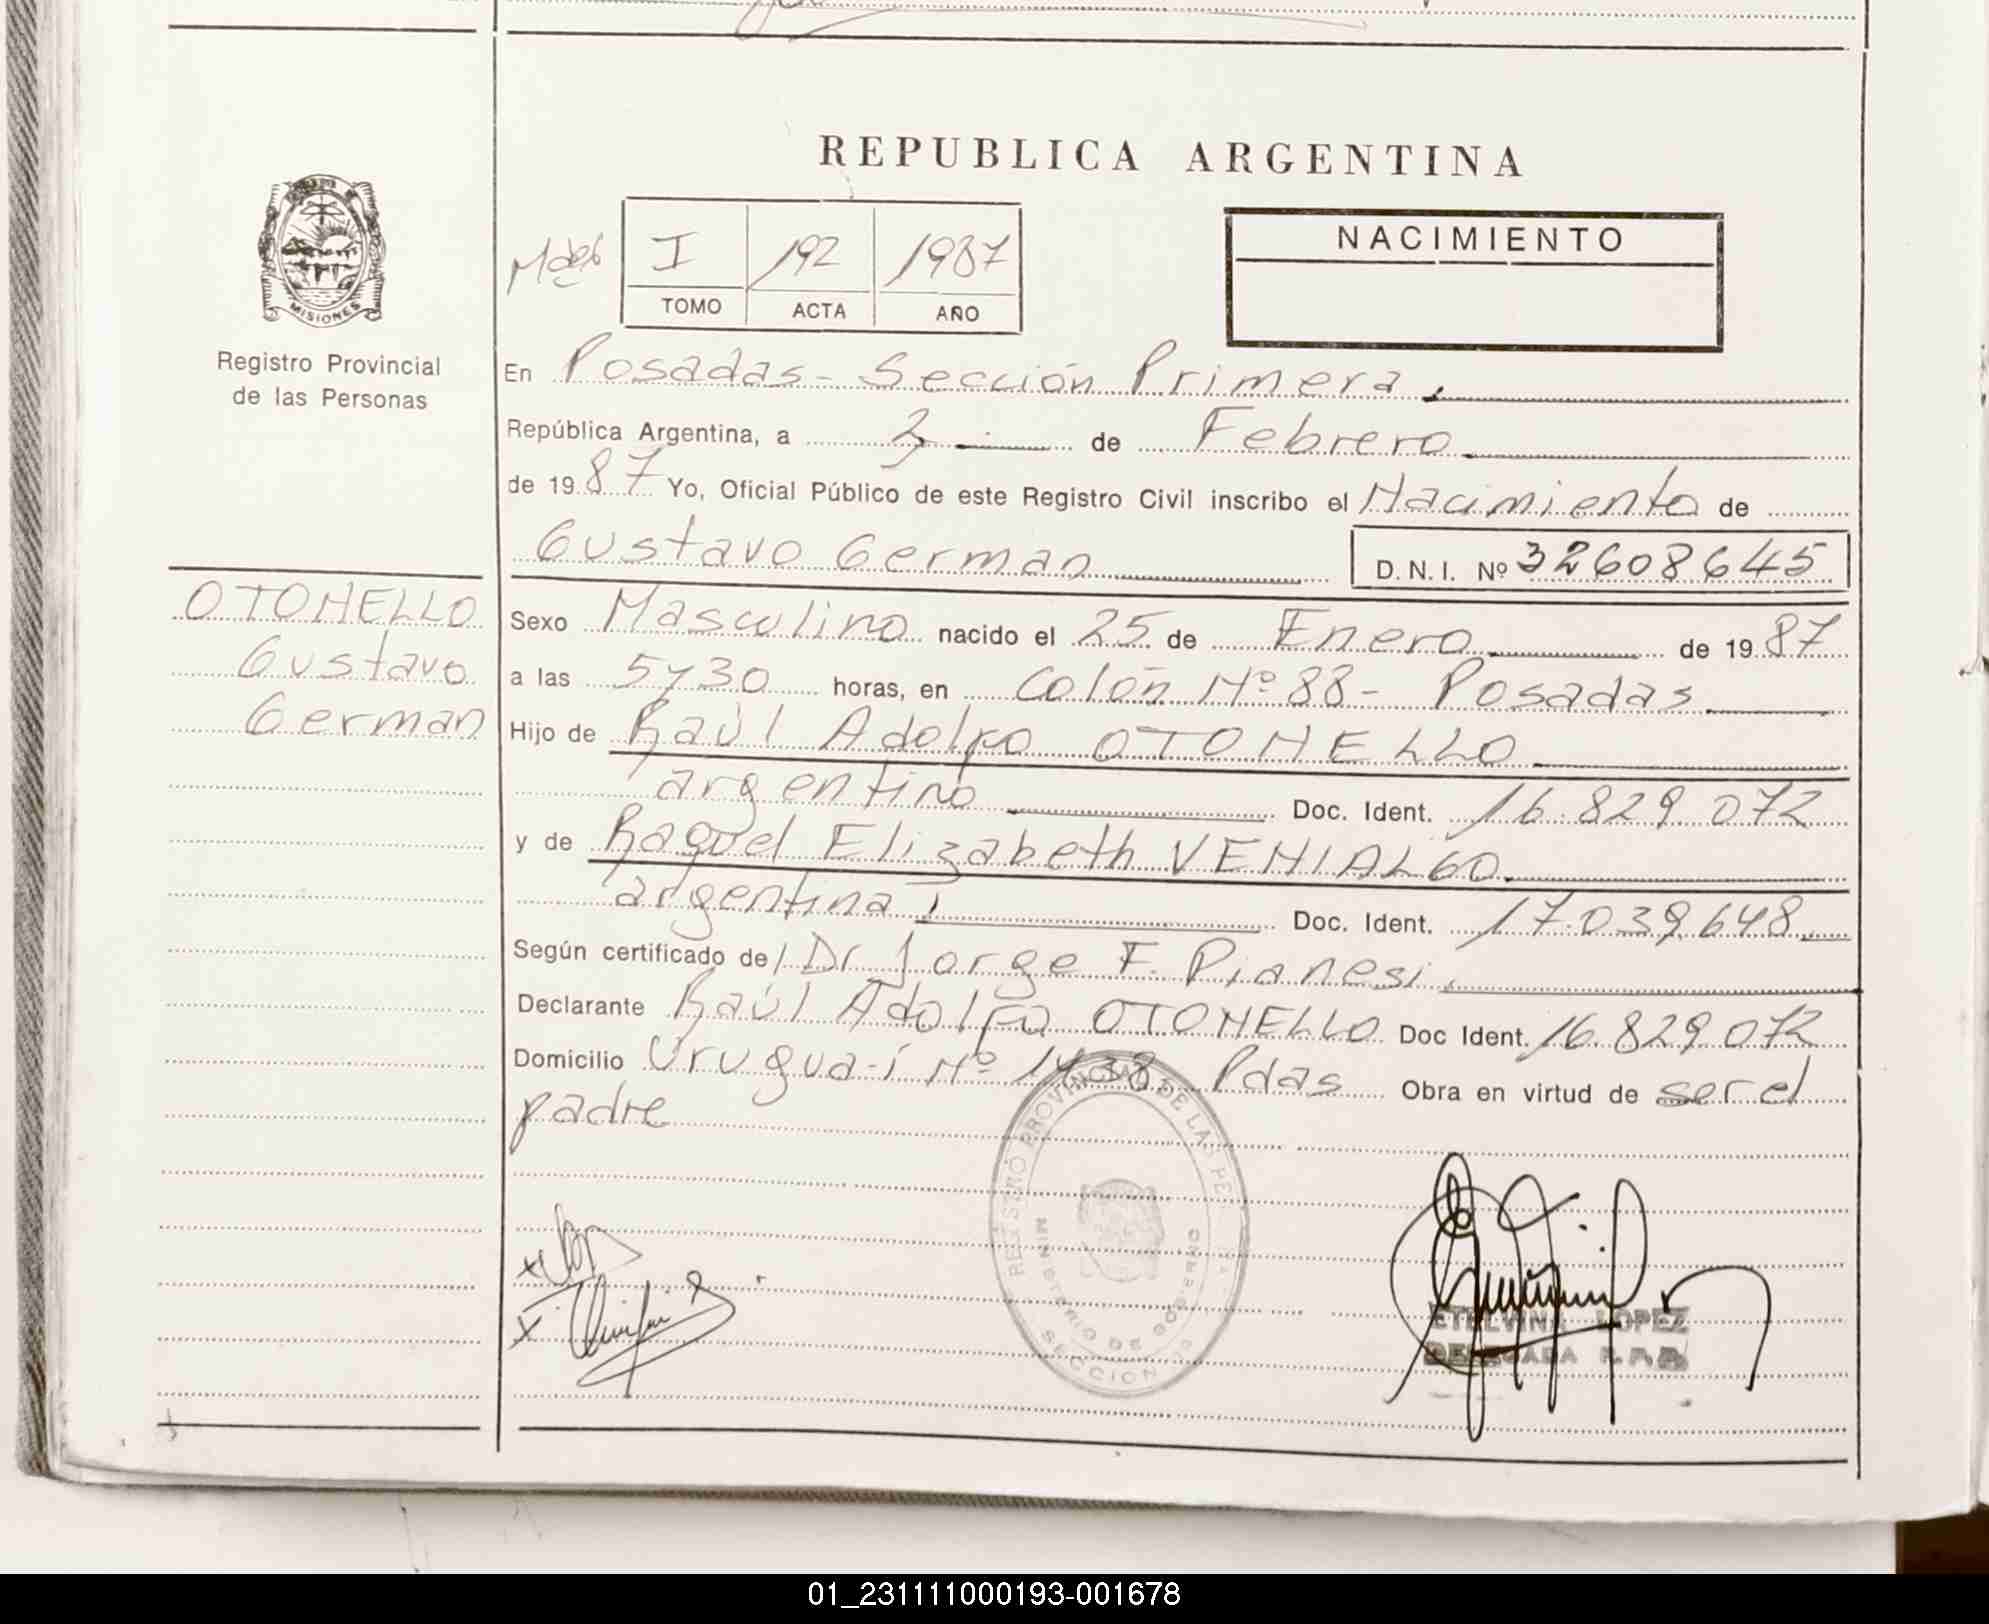 REPUBLICA ARGENTINA
I 192 1987
TOMO ACTA AÑO
NACIMIENTO
MISIONES
Registro Provincial
de las Personas
En Posadas - Sección Primera.
República Argentina, a 2 de Febrero
de 1987 Yo, Oficial Público de este Registro Civil inscribo el Nacimiento de
Gustavo German D.N.I. Nº 32608645
OTONELLO
Gustavo
German
Sexo Masculino nacido el 25 de Enero de 1987
a las 5y30 horas, en Colón Nº 88 - Posadas
Hijo de Raúl Adolfo OTONELLO
argentino Doc. Ident. 16.829.072
y de Raquel Elizabeth VENIALGO
argentina Doc. Ident. 17.039.648
Según certificado de Dr Jorge F. Pianesi
Declarante Raúl Adolfo OTONELLO Doc Ident. 16.829.072
Domicilio Urugua-í Nº 1438 Pdas Obra en virtud de ser el
padre
REGISTRO PROVINCIAL DE LAS PE
MINISTERIO DE GOBIERNO
SECCION
ETELVINA LOPEZ
DELEGADA R.P.P.
01_231111000193-001678